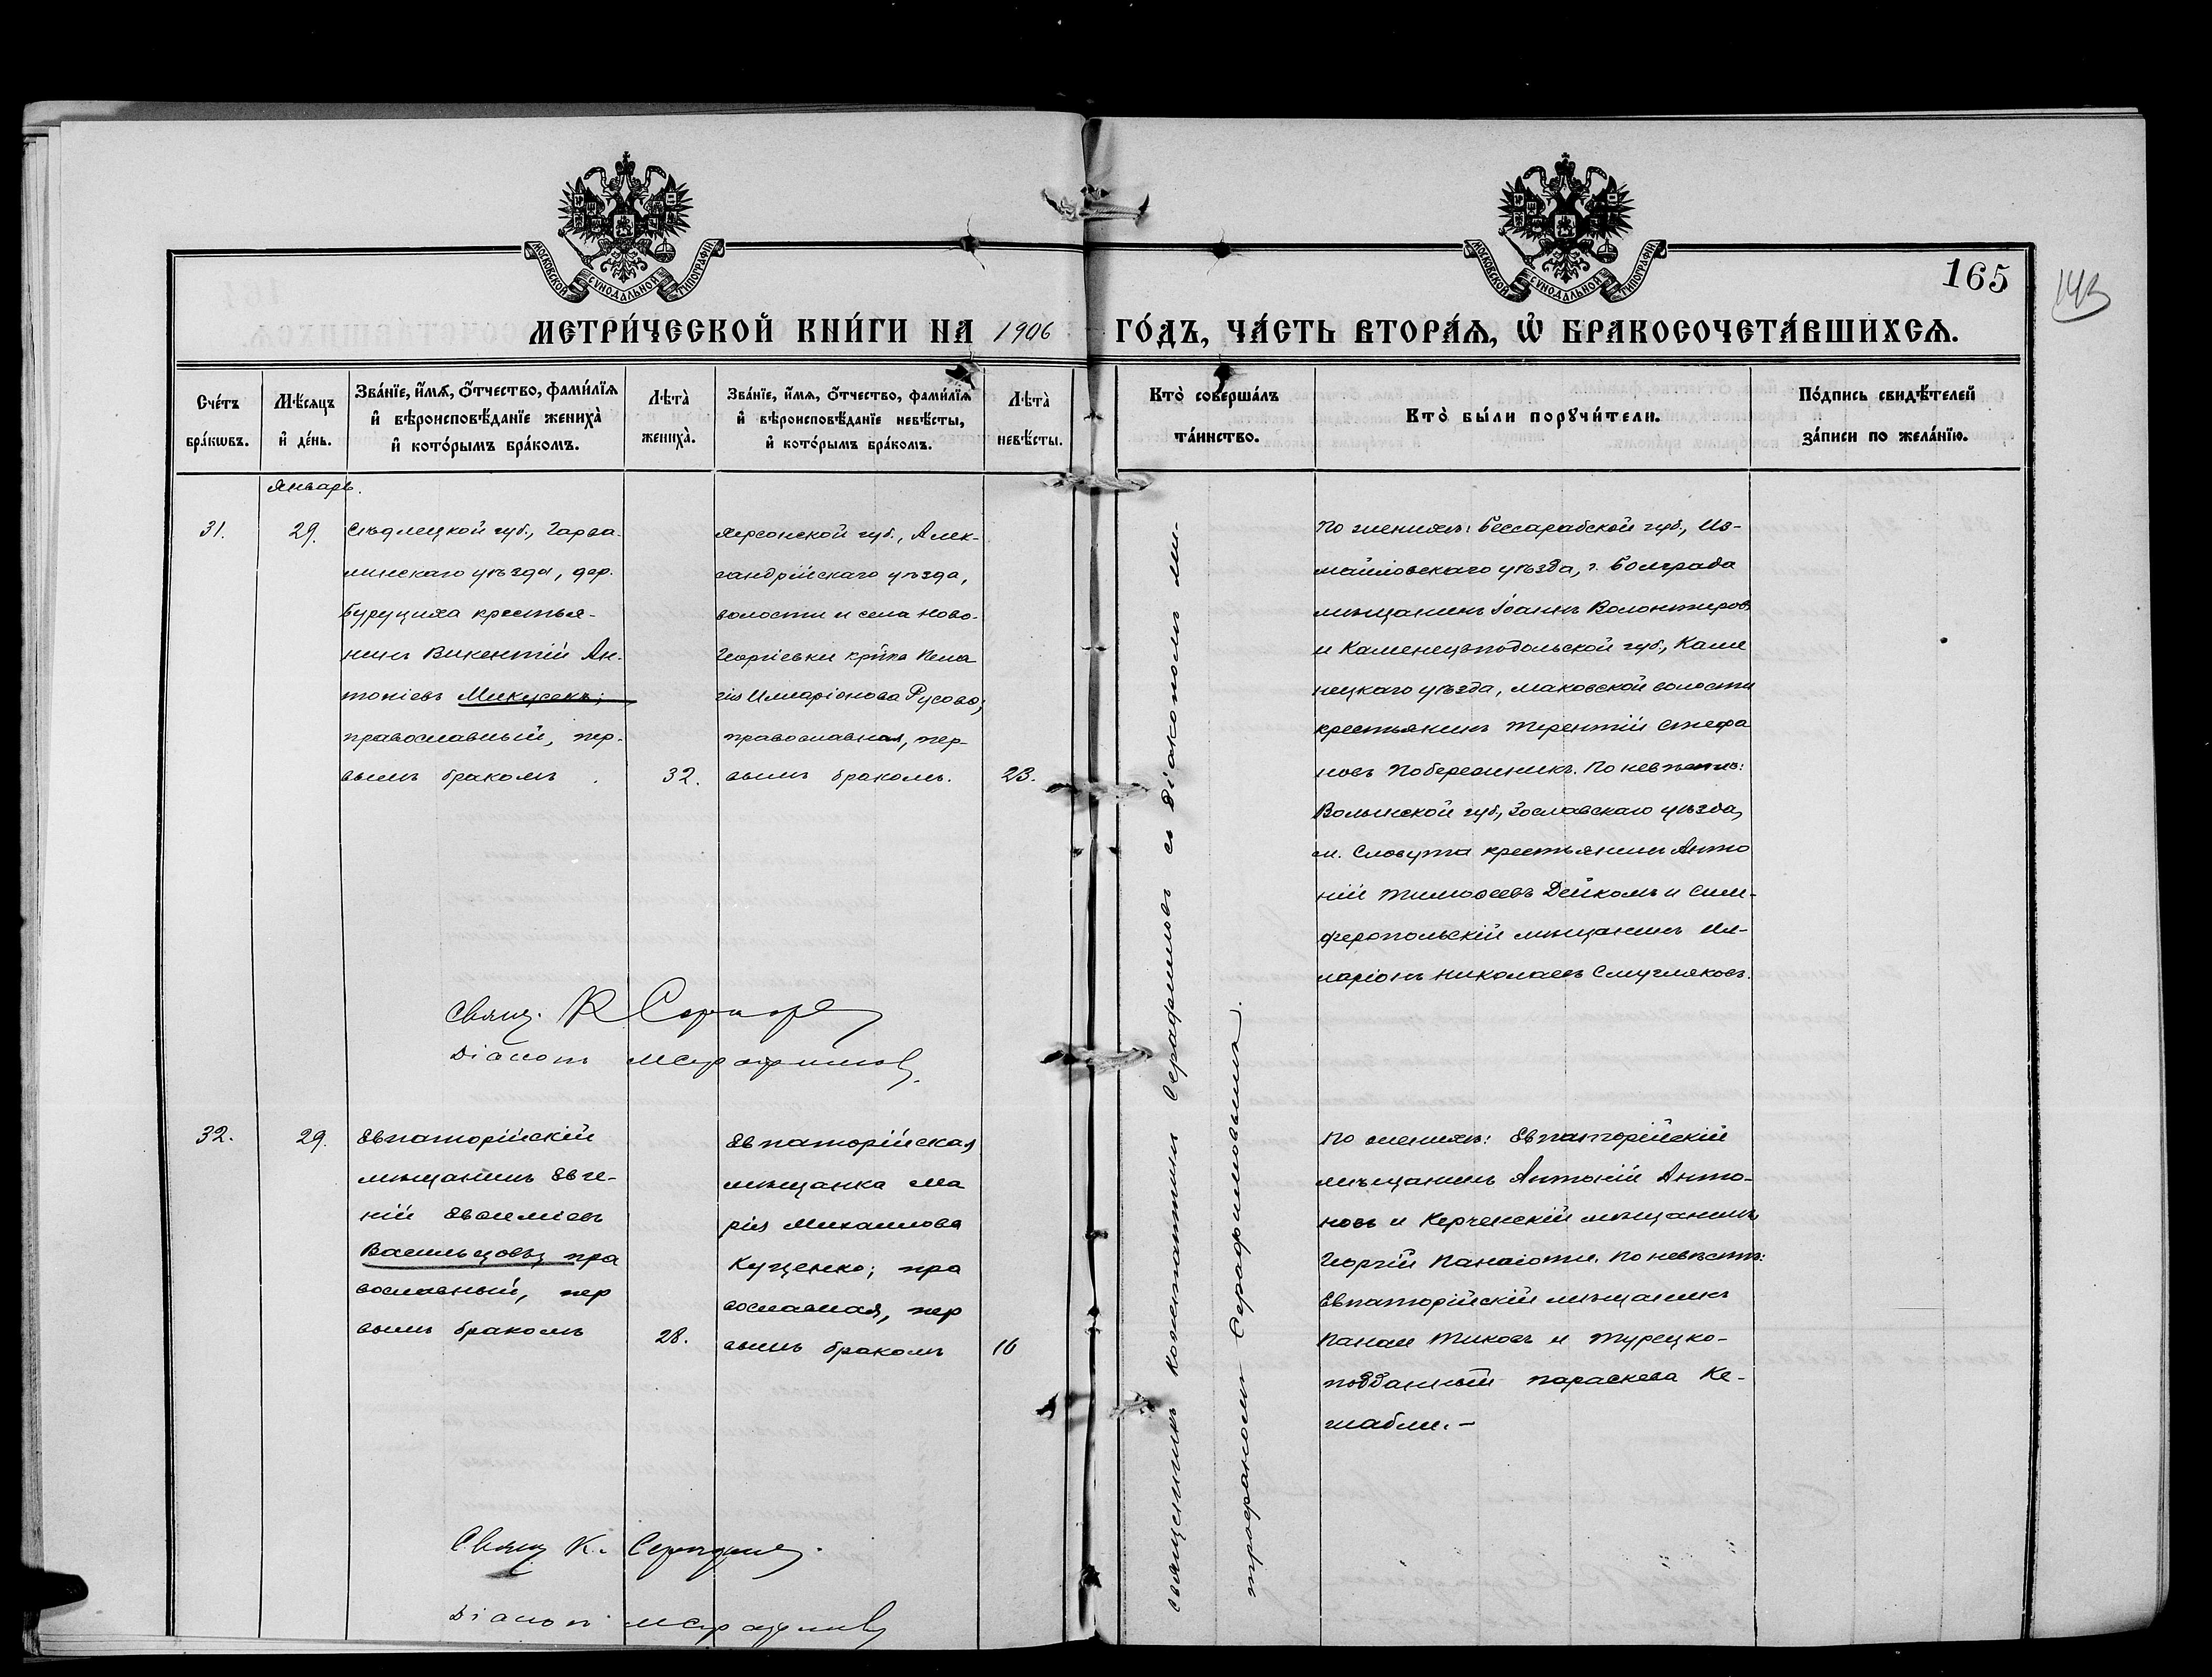 МОСКОВСКОЙ СУНОДАЛЬНОЙ ТИПОГРАФІИ
МОСКОВСКОЙ СУНОДАЛЬНОЙ ТИПОГРАФІИ
165
143
МЕТРИ́ЧЕСКОЙ КНИ́ГИ НА 1906 ГО́ДЪ, ЧА́СТЬ ВТОРА́Ѧ, Ѡ҆ БРАКОСОЧЕТА́ВШИХСѦ.
Сче́тъ
бра́кѡвъ.
Мѣ́сѧцъ
и҆ де́нь.
Зва́нїе, и҆́мѧ, ѻ҆́тчество, фами́лїѧ
и҆ вѣроисповѣ́данїе жениха̀
и҆ кото́рымъ бра́комъ.
Лѣта̀
жениха̀.
Зва́нїе, и҆́мѧ, ѻ҆́тчество, фами́лїѧ
и҆ вѣроисповѣ́данїе невѣ́сты,
и҆ кото́рымъ бра́комъ.
Лѣта̀
невѣ́сты.
Кто̀ соверша́лъ
та́инство.
Кто̀ бы́ли порꙋчи́тели.
По́дпись свидѣ́телей
за́писи по жела́нїю.
Январь.
31.
29.
Сѣдлецкой губ., Гарва-
линскаго уѣзда, дер.
Буруциха крестья-
нинъ Викентій Ан-
тоніевъ Микусекъ;
православный, пер-
вымъ бракомъ
32.
Херсонской губ., Алек-
сандрійскаго уѣзда,
волости и села Ново-
Георгіевки кр͠тка Пела
гія Илларіонова Русова;
православная, пер-
вымъ бракомъ.
23.
Священникъ Константинъ Серафимовъ съ діакономъ Ми-
трофаномъ Серафимовымъ.
По женихѣ: Бессарабской губ., Из-
маиловскаго уѣзда, г. Болграда
мѣщанинъ Іоаннъ Волонтировъ
и Каменецъподольской губ., Каме
нецкаго уѣзда, Маковской волости
крестьянинъ Терентій Стефа
новъ Побережникъ. По невѣстѣ:
Волынской губ., Зославскаго уѣзда,
м. Славута крестьянинъ Анто
ній Тимоѳеевъ Дейкомъ и Сим-
феропольскій мѣщанинъ Ил-
ларіонъ Николаевъ Смугляковъ.
Свящ. К
Діаконъ М Серафимовъ.
32.
29.
Евпаторійскій
мѣщанинъ Евге-
ній Евѳиміевъ
Васильцовъ; пра
вославный, пер
вымъ бракомъ
28.
Евпаторійская
мѣщанка Ма
рія Михаилова
Куценко; пра
вославная, пер
вымъ бракомъ
16
По женихѣ: Евпаторійскій
мѣщанинъ Антоній Анто-
новъ и Керченскій мѣщанинъ
Георгій Панаіоти. По невѣстѣ:
Евпаторійскій мѣщанинъ
Панаи Тиковъ и Турецко-
подданный Параскева Ке-
Свящ К. Серафимовъ.
Діаконъ М Серафимовъ